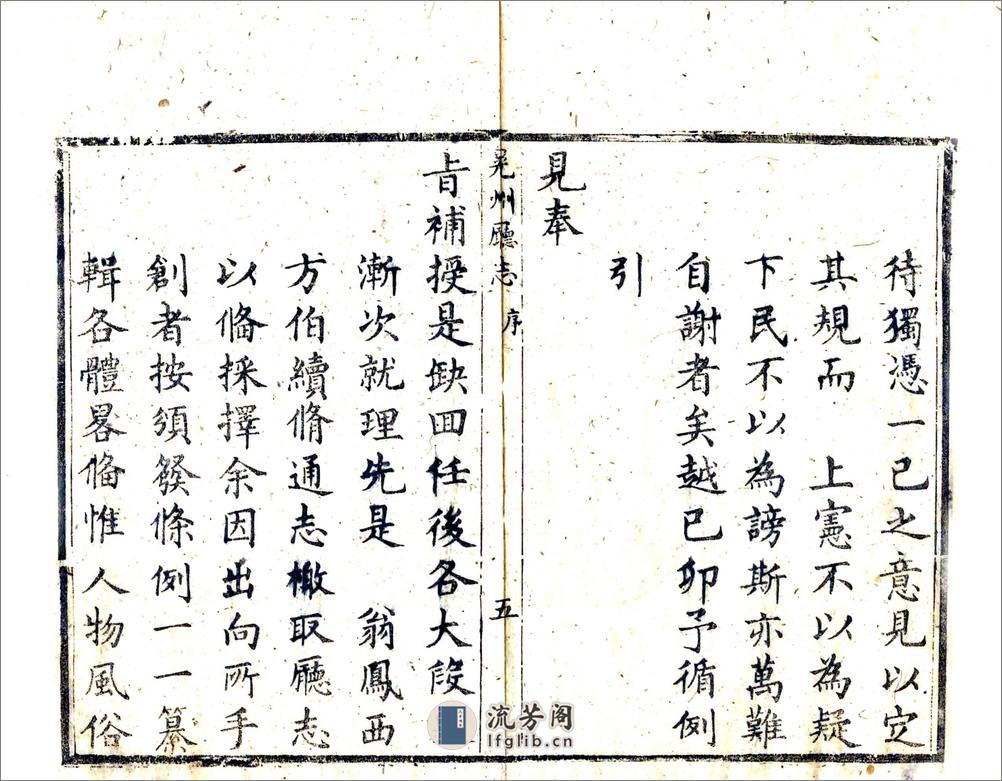 待獨憑一已之意見以定
其規而　上憲不以為疑
下民不以為謗斯亦萬難
自謝者矣越已卯予循例
引
見奉
晃州廳志
序
五
旨補授是缺囬任後各大段
漸次就理先是　翁鳳西
方伯續脩通志檄取廳志
以偹採擇余因出向所手
創者按須發條例一一纂
輯各體畧偹惟人物風俗
流芳阁
lfglib.cn